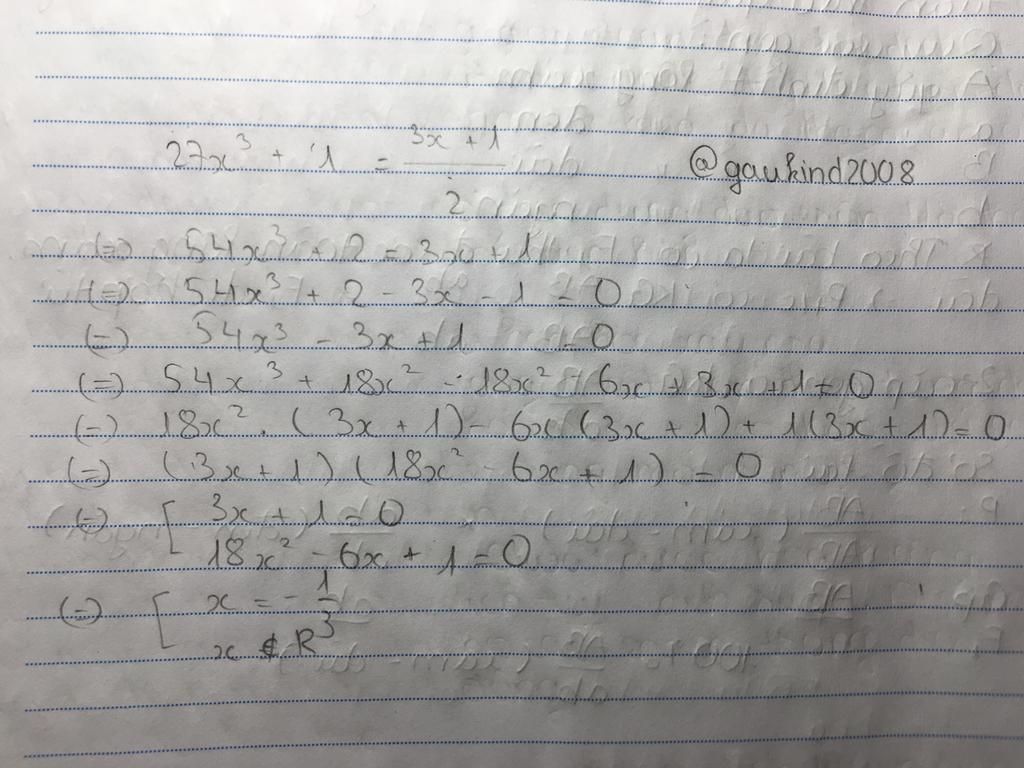 27x³ + 1 = (3x + 1)/2 @gaukind2008
(=) 54x³ + 2 = 3x + 1
(=) 54x³ + 2 - 3x - 1 = 0
(=) 54x³ - 3x + 1 = 0
(=) 54x³ + 18x² - 18x² - 6x + 3x + 1 = 0
(=) 18x² . (3x + 1) - 6x (3x + 1) + 1(3x + 1) = 0
(=) (3x + 1) (18x² - 6x + 1) = 0
(=) [ 3x + 1 = 0
18x² - 6x + 1 = 0
(=) [ x = - 1/3
x ∉ R